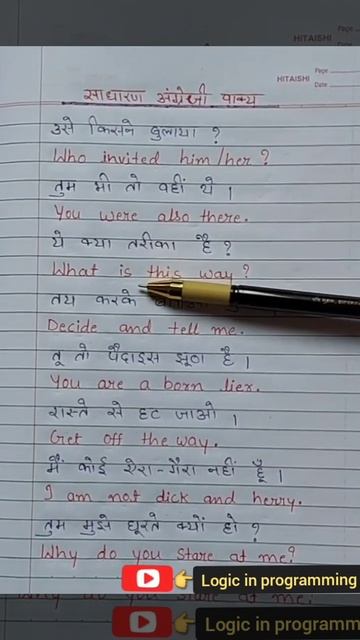 HITAISHI
Page
HITAISHI
Page
Date
साधारण अंग्रेजी वाक्य
उसे किसने बुलाया ?
Who invited him/her ?
तुम भी तो वहीं थे ।
You were also there.
ये क्या तरीका है ?
What is this way ?
तय करके
Decide and tell me.
तू तो पैदाइस झूठा है ।
You are a born lier.
रास्ते से हट जाओ ।
Get off the way.
मैं कोई ऐरा-गैरा नहीं हूँ ।
I am not dick and herry.
तुम मुझे घूरते क्यों हो ?
Why do you stare at me?
Logic in programming
Why do you stare at me?
Logic in programming